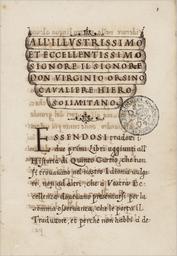 ALL'ILLVSTRISSIMO
ET ECCELLENTISSIMO
SIGNORE IL SIGNORE
DON VIRGINIO ORSINO
CAVALIERE HIERO
SOLIMITANO.
ESSENDOSI ridotti i
due primi Libri aggiunti all'
Historia di Quinto Curtio, che non
si trovavano nel nostro Idioma vulga-
re, non ad altri, che a Vostra Ec-
cellenza doveano presentarsi per la
somma osservanza, che le porta il
Traduttore, et perchè non havrà a de